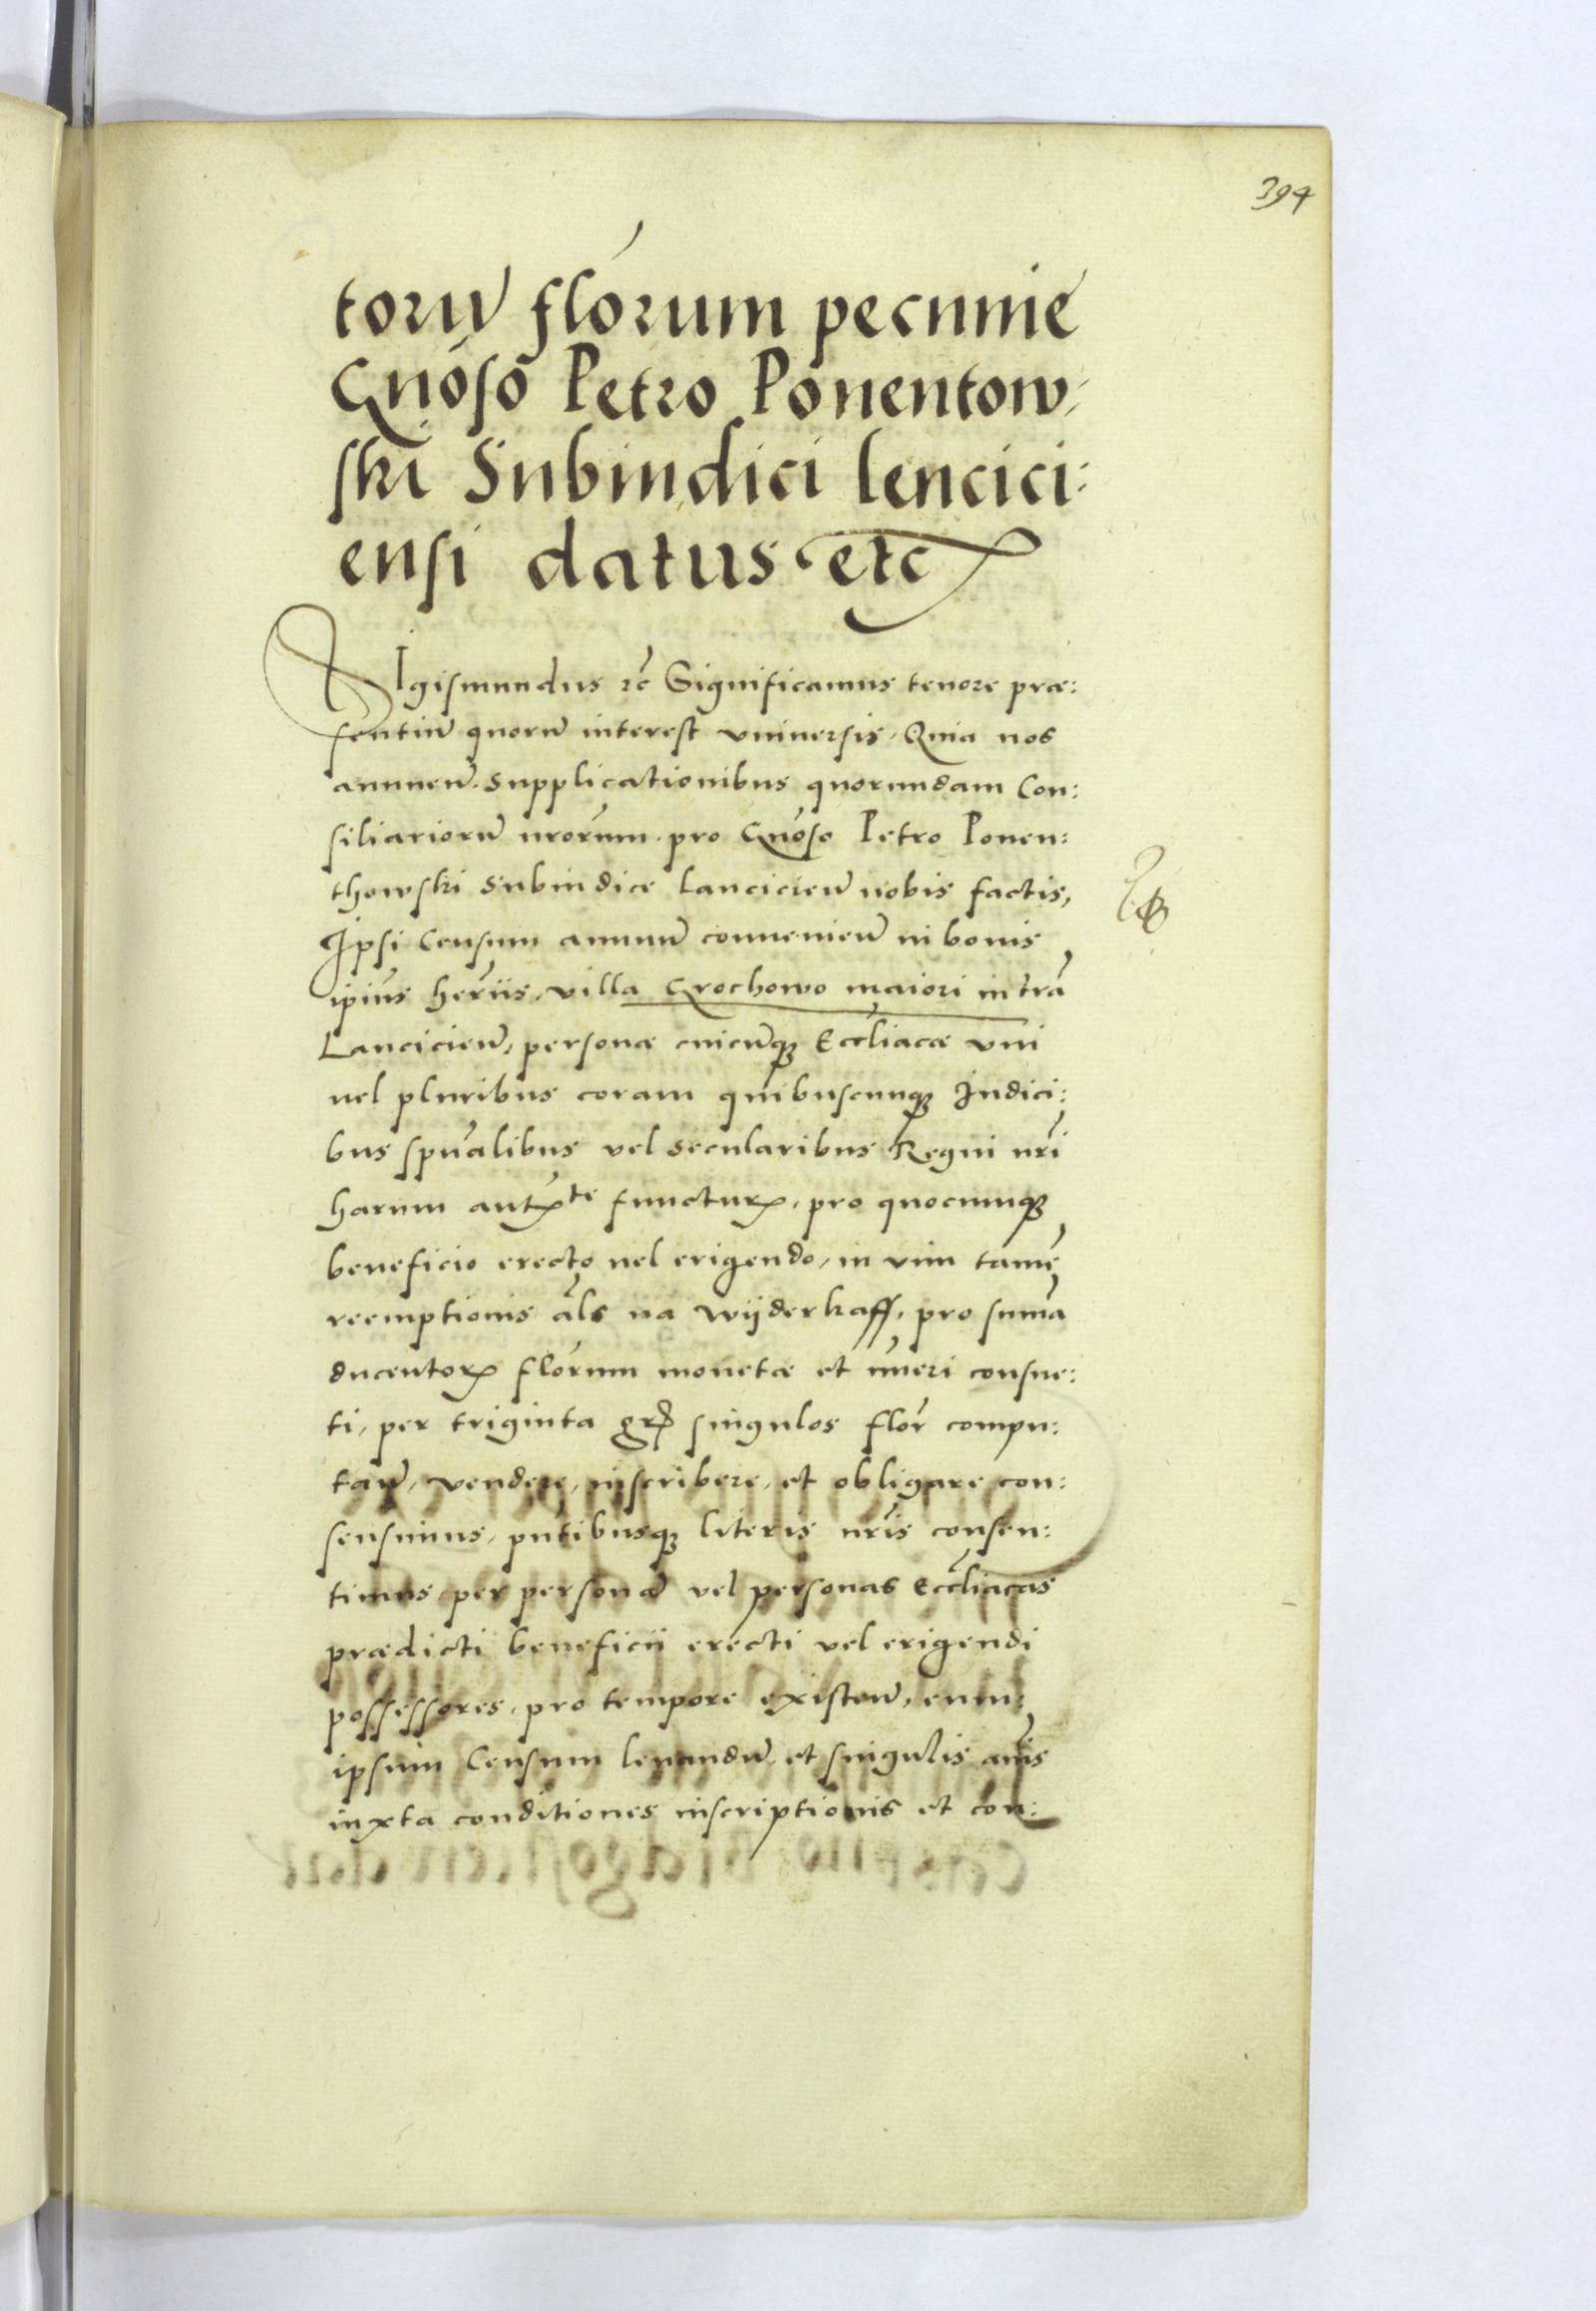 394
torũ florum pecunie
Gnoso Petro Ponentow-
ski Subiudici lencici:
ensi datus etc
SIgismundus rc Significamus tenore præ:
sentiũ quorũ interest vniuersis, Quia nos
annueñ. supplicationibus quorundam Con:
siliariorũ nrorum. pro Gnoso Petro Ponen:
thowski Subiudice Lancicieñ nobis factis,
Ipsi Censum annuũ conuenieñ in bonis
ipius heriis, villa Grochowo maiori in tra
Lancicieñ, personæ cuicũq Eccliacæ vni
uel pluribus coram quibuscunq Iudici:
bus spualibus vel secularibus Regni nri
harum autte functur, pro quocunq
beneficio erecto uel erigendo, in vim tame
reemptionis als na wyderkaff, pro suma
ducentor florum monetæ et nueri consue:
ti, per triginta gr singulos flor compu:
tañ, vendere, inscribere, et obligare con:
sensimus, pntibusq literis nris consen:
timus per personã vel personas Eccliacas
prædicti beneficii erecti vel erigendi
possessores, pro tempore existeñ, eum:
ipsum Censum leuandũ et singulis anis
iuxta conditiones inscriptionis et con: